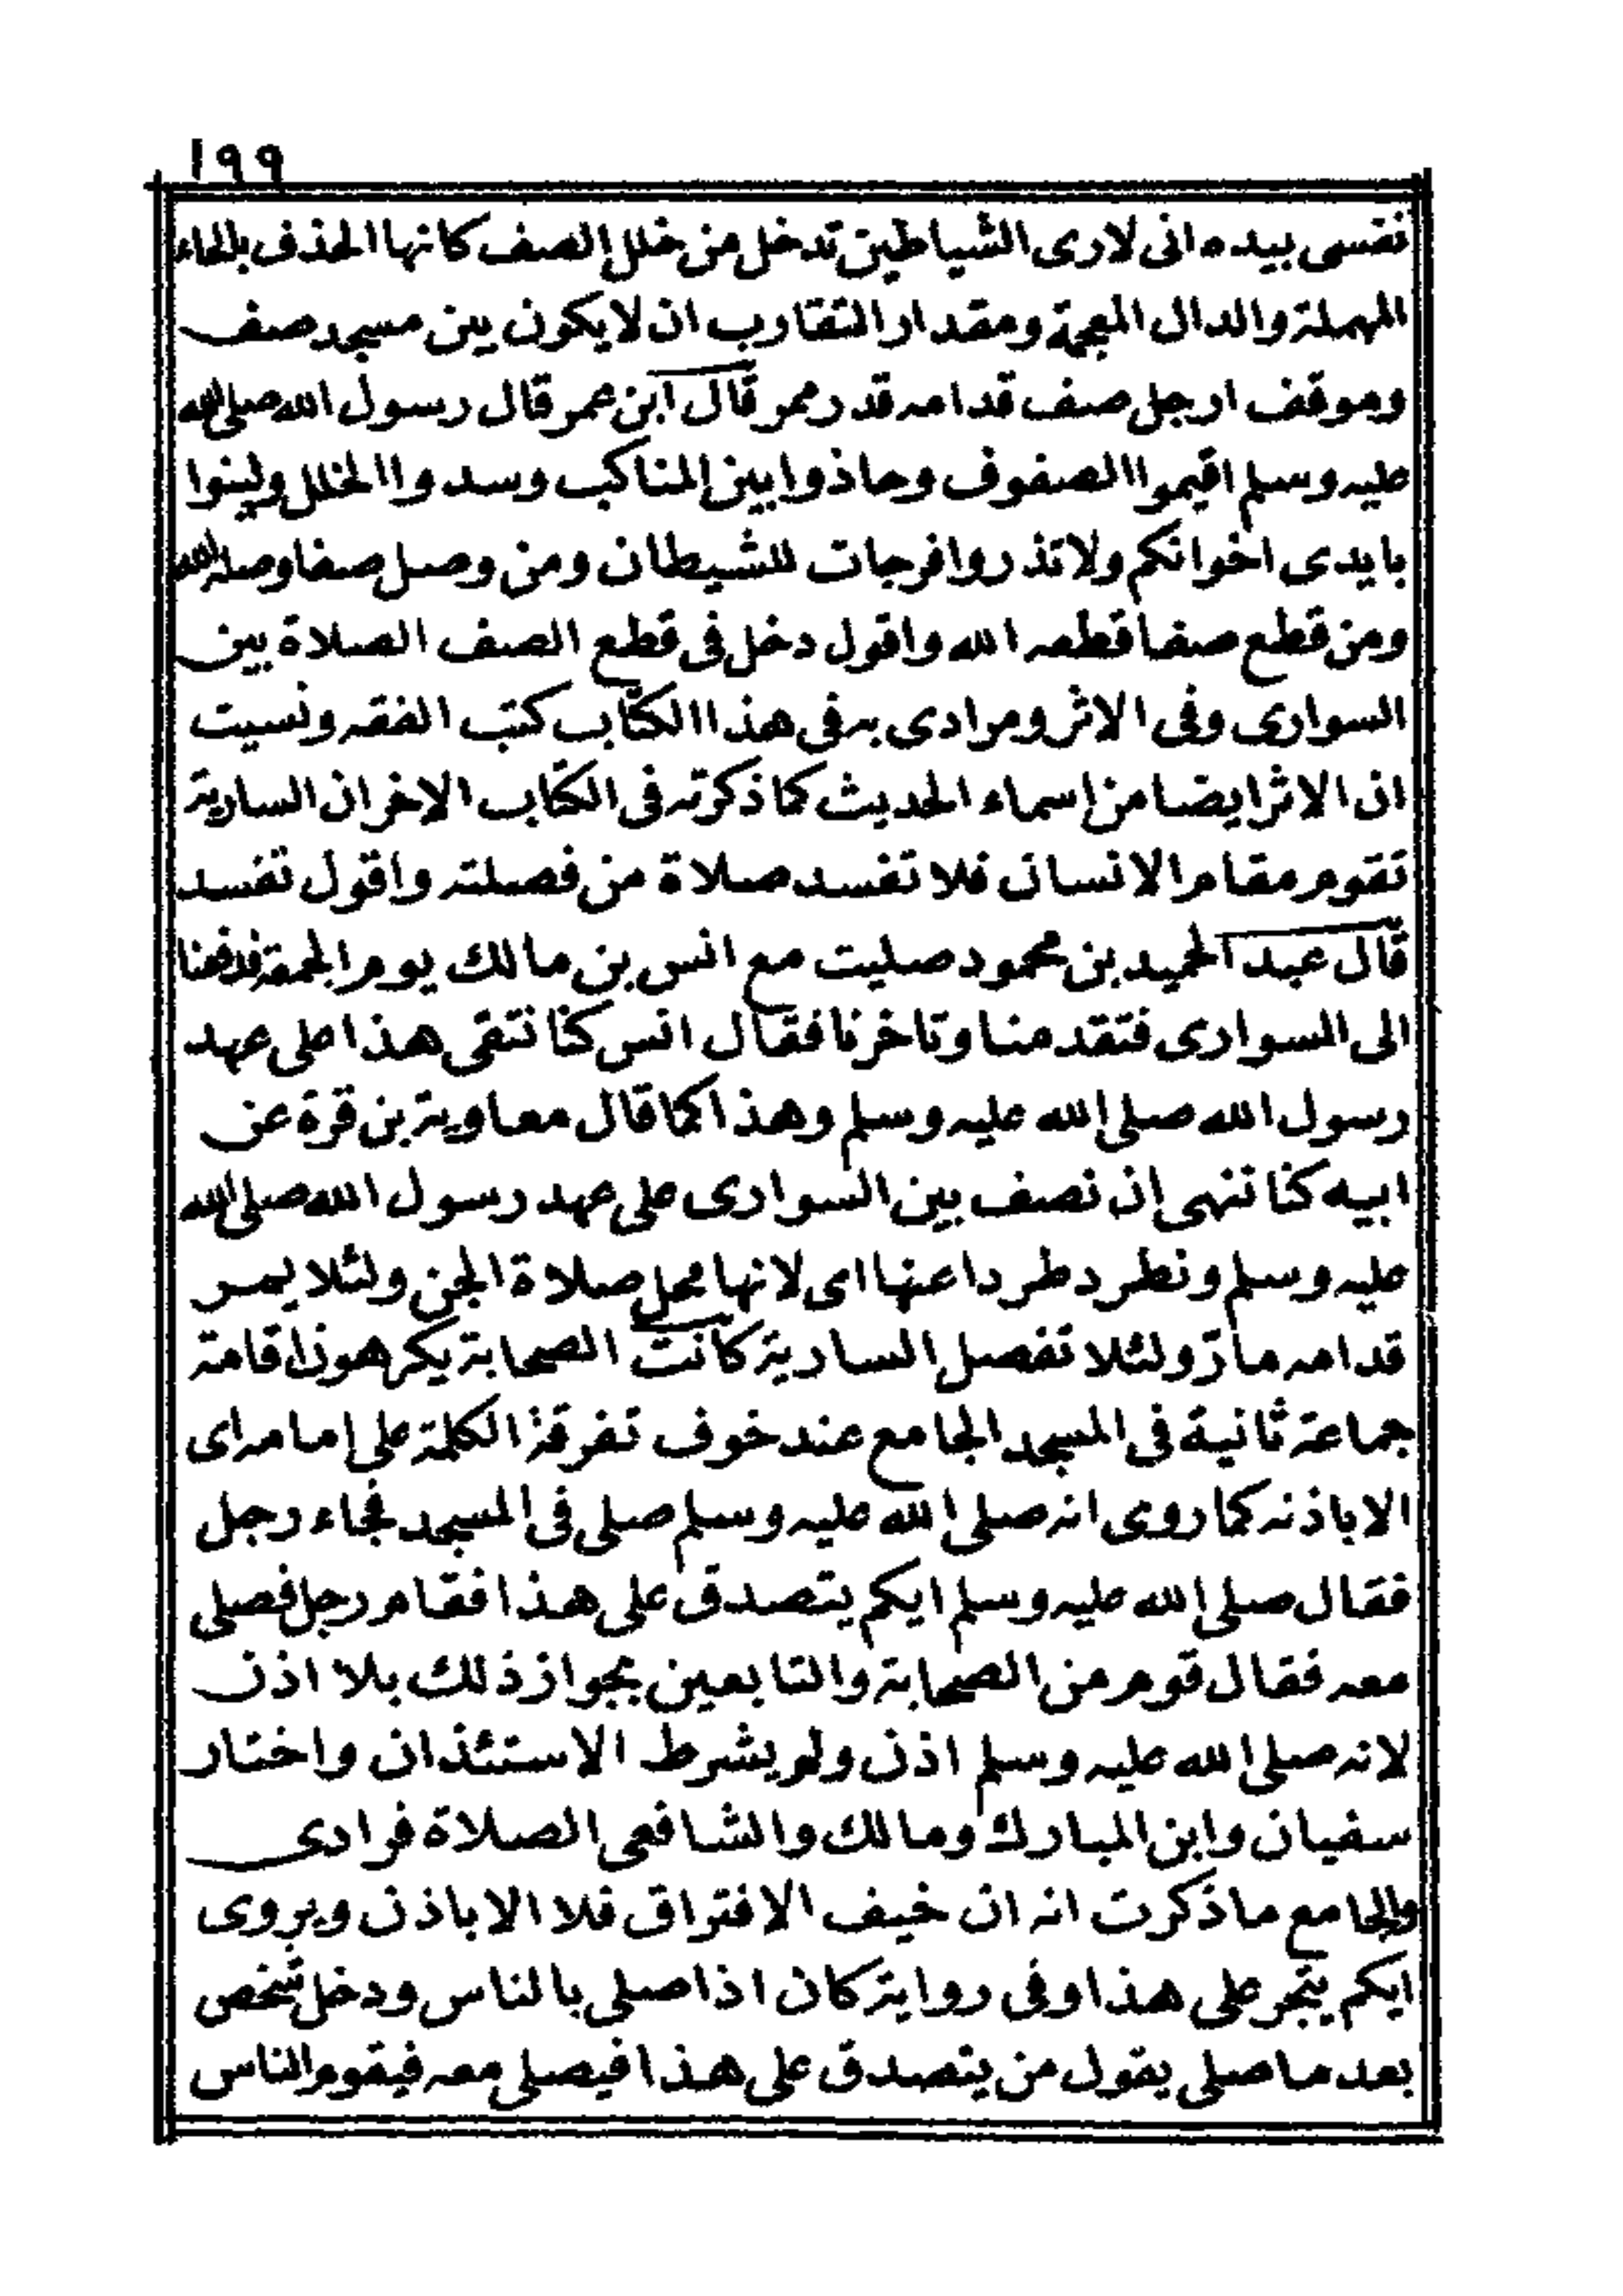 ١٩٩
نفسى بيده انى لارى الشياطين تدخل من خلل الصف كانها الحذف بالحاء
المهملة والدال المعجمة ومقدار التقارب ان لا يكون بين مسجد صف
وموقف ارجل صف قدامه قدر ممر قال ابن عمر قال رسول الله صلى الله
عليه وسلم اقيموا الصفوف وحاذوا بين المناكب وسدوا الخلل ولينوا
بايدى اخوانكم ولا تذروا فرجات للشيطان ومن وصل صفا وصله الله
ومن قطع صفا قطعه الله واقول دخل فى قطع الصف الصلاة بين
السوارى وفى الاثر ومرادى به فى هذا الكتاب كتب الفقه ونسيت
ان الاثر ايضا من اسماء الحديث كما ذكرته فى الكتاب الاخر ان السارية
تقوم مقام الانسان فلا تفسد صلاة من فصلته واقول تفسد
قال عبد الحميد بن محمود صليت مع انس بن مالك يوم الجمعة فدفعنا
الى السوارى فتقدمنا وتاخرنا فقال انس كنا نتقى هذا على عهد
رسول الله صلى الله عليه وسلم وهذا كما قال معاوية بن قرة عن
ابيه كنا ننهى ان نصف بين السوارى على عهد رسول الله صلى الله
عليه وسلم ونطرد طردا عنها اى لانها محل صلاة الجن ولئلا يمر
قدامه مارّ ولئلا تفصل السارية كانت الصحابة يكرهون اقامة
جماعة ثانية فى المسجد الجامع عند خوف تفرقة الكلمة على امام راى
الا باذنه كما روى انه صلى الله عليه وسلم صلى فى المسجد فجاء رجل
فقال صلى الله عليه وسلم ايكم يتصدق على هذا فقام رجل فصلى
معه فقال قوم من الصحابة والتابعين بجواز ذلك بلا اذن
لانه صلى الله عليه وسلم اذن ولم يشرط الاستئذان واختار
سفيان وابن المبارك ومالك والشافعى الصلاة فرادى
والجامع ما ذكرت انه ان خيف الافتراق فلا الا باذن ويروى
ايكم يتجر على هذا وفى رواية كان اذا صلى بالناس ودخل شخص
بعد ما صلى يقول من يتصدق على هذا فيصلى معه فيقوم الناس